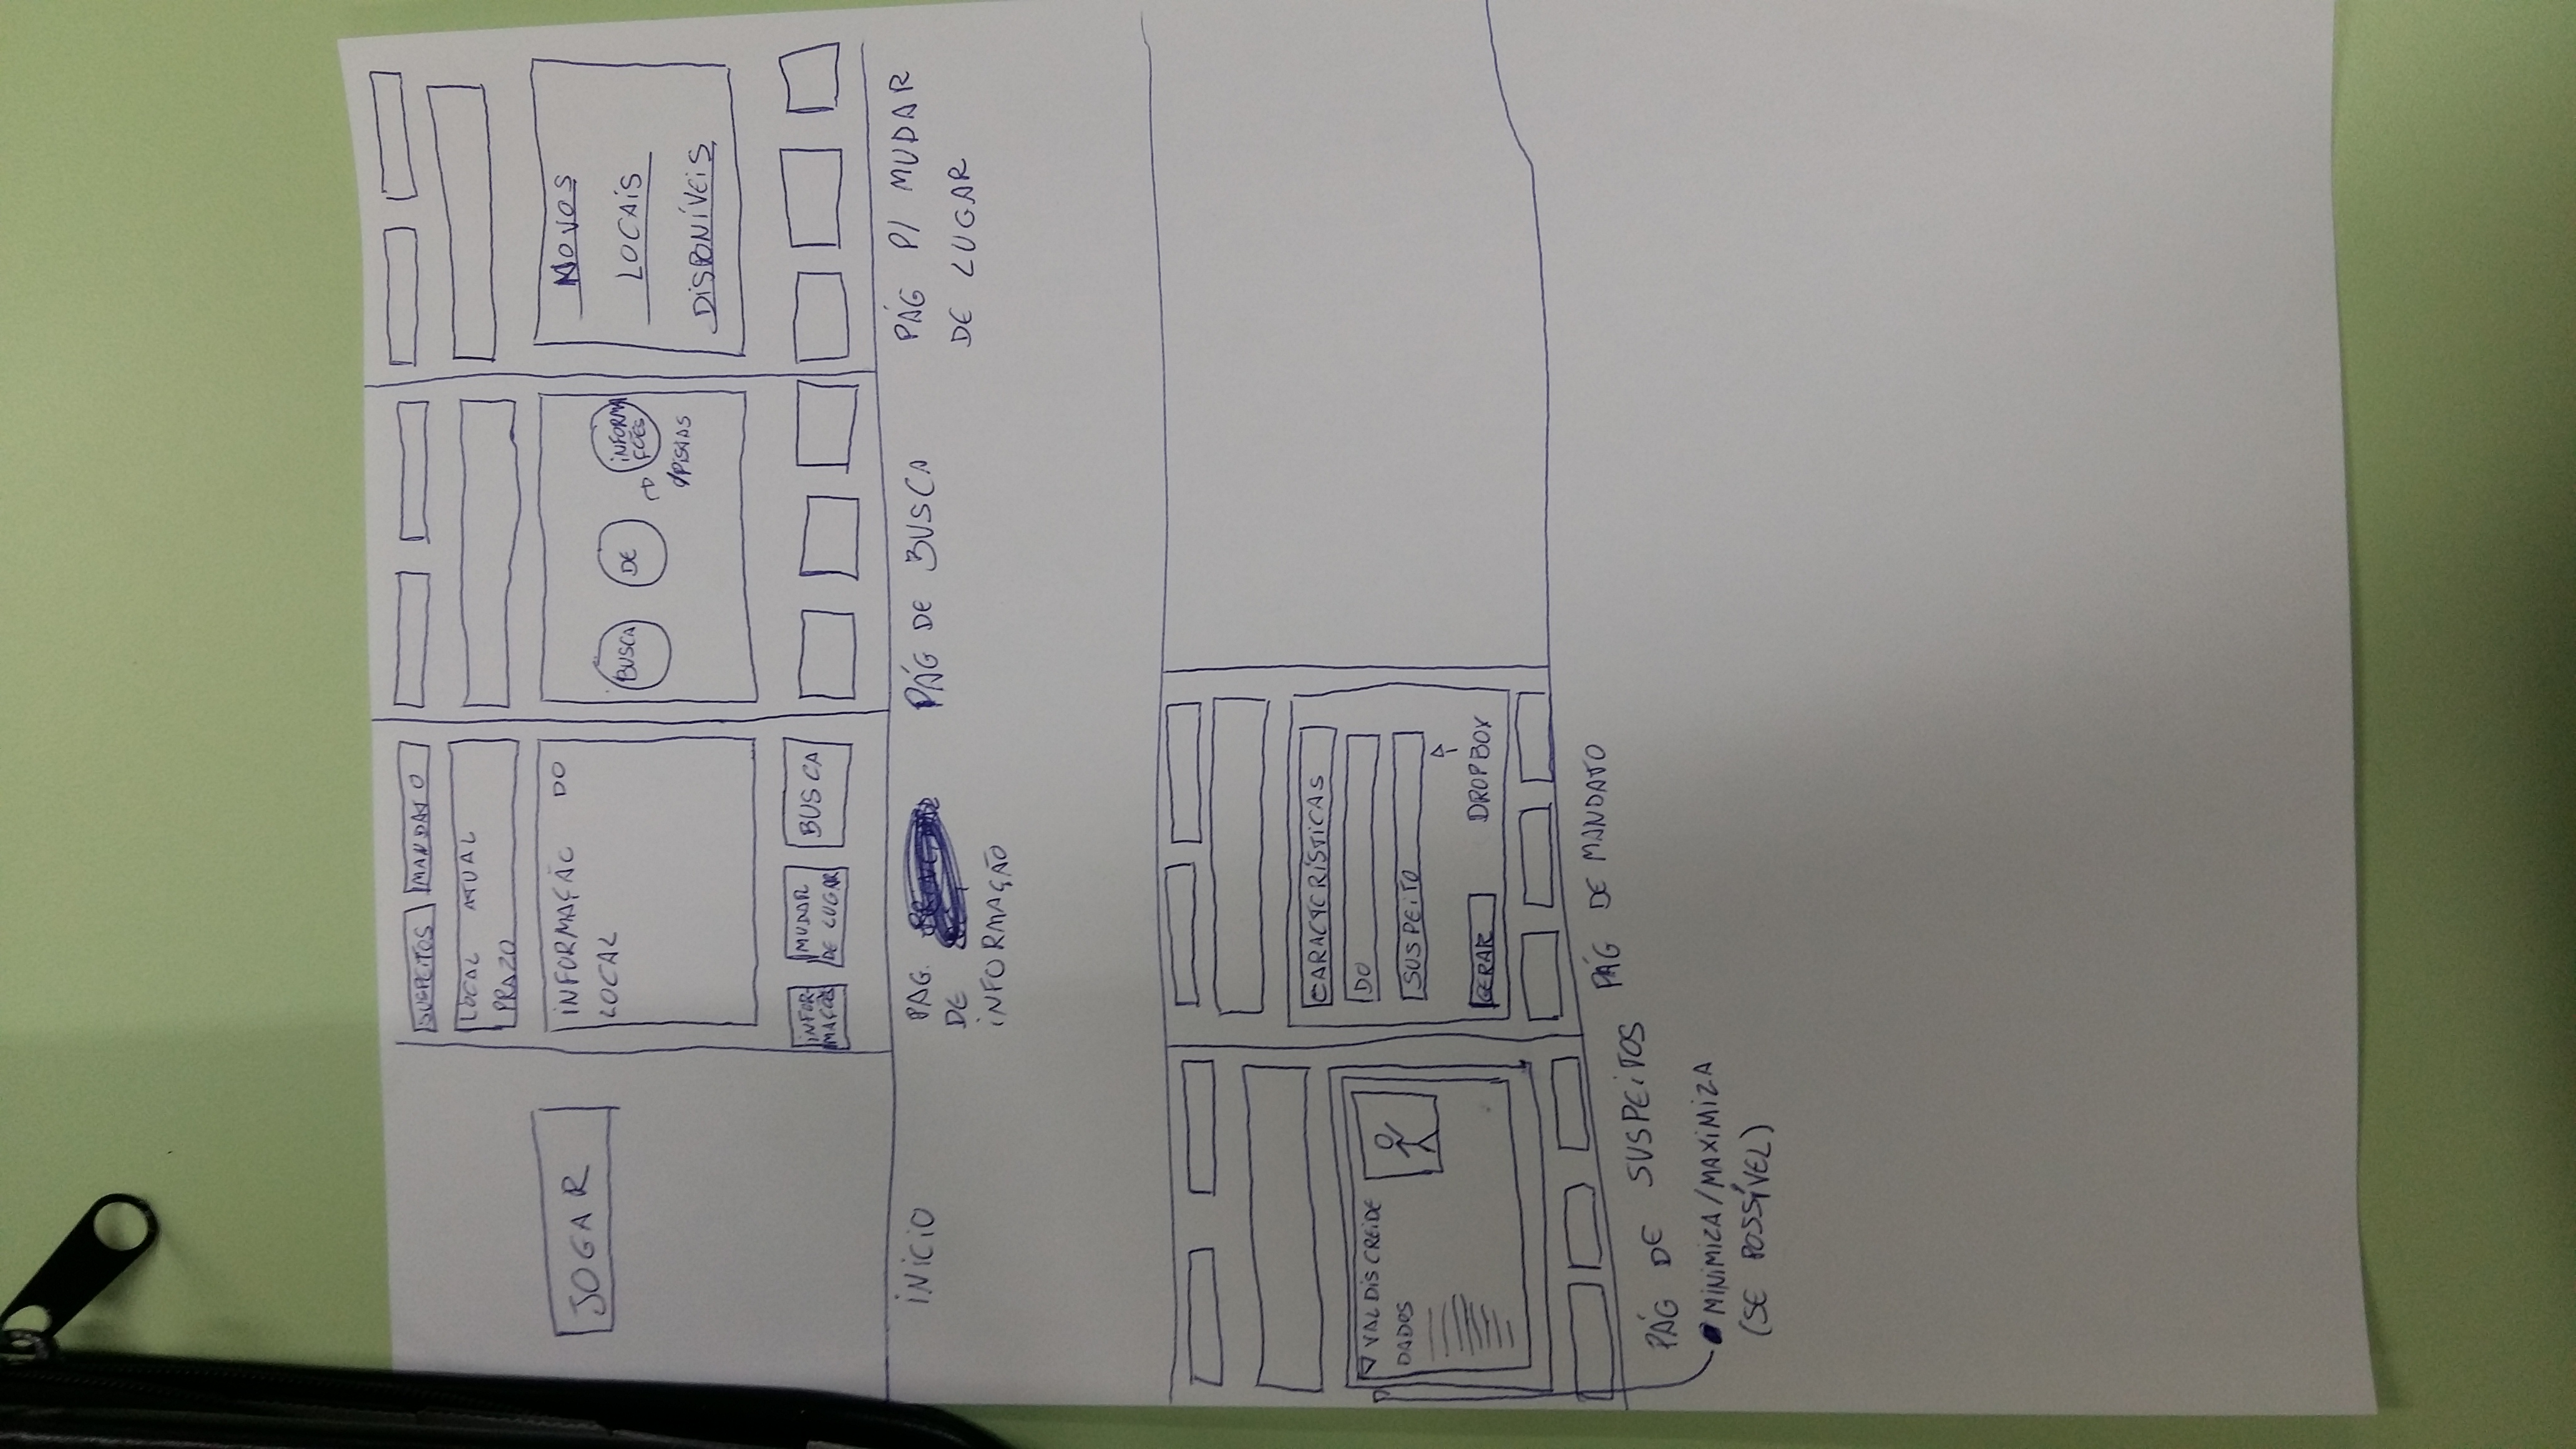 JOGAR
INÍCIO
SUSPEITOS
MANDATO
LOCAL ATUAL
PRAZO
INFORMAÇÃO DO
LOCAL
INFOR
MAÇÕES
MUDAR
DE LUGAR
BUSCA
PÁG.
DE
INFORMAÇÃO
BUSCA
DE
INFORMA
ÇÕES
P/PISTAS
PÁG DE BUSCA
NOVOS
LOCAIS
DISPONÍVEIS
PÁG P/ MUDAR
DE LUGAR
VALDISCREIDE
DADOS
PÁG DE SUSPEITOS
MINIMIZA/MAXIMIZA
(SE POSSÍVEL)
CARACTERÍSTICAS
DO
SUSPEITO
GERAR
DROPBOX
PÁG DE MANDATO